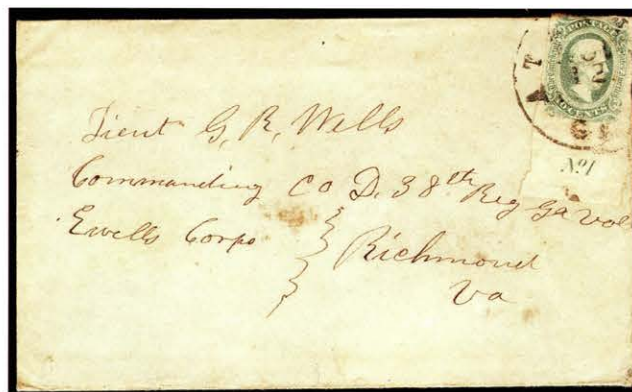 Lieut G. R. Wells
Commanding Co D. 38th Reg Ga Vol
Ewells Corps
Richmond
Va
No 1